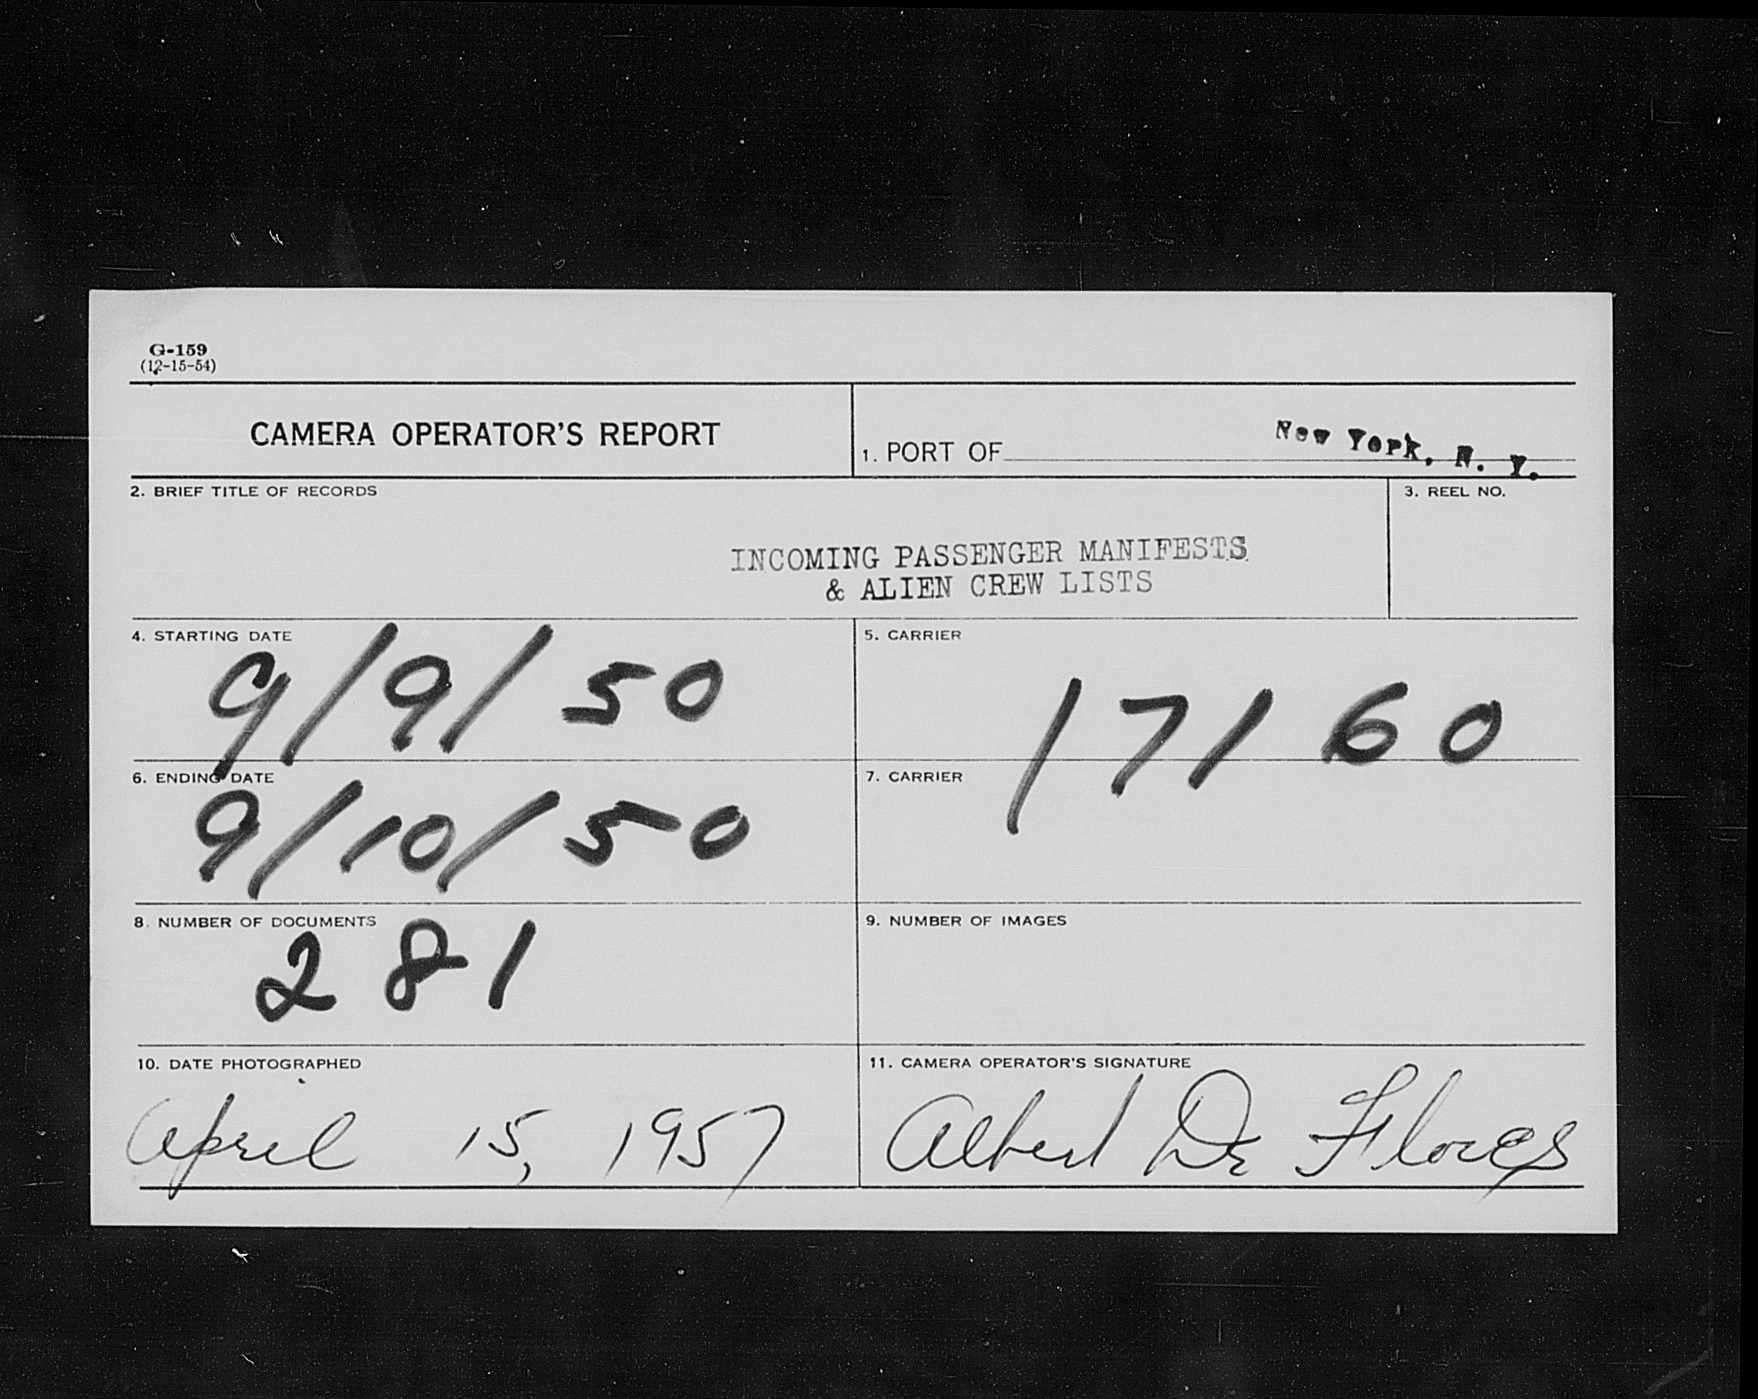 G-159
(12-15-54)
CAMERA OPERATOR'S REPORT
1. PORT OF New York, N. Y.
2. BRIEF TITLE OF RECORDS
3. REEL NO.
INCOMING PASSENGER MANIFESTS
& ALIEN CREW LISTS
4. STARTING DATE
9/9/50
5. CARRIER
17160
6. ENDING DATE
9/10/50
7. CARRIER
8. NUMBER OF DOCUMENTS
281
9. NUMBER OF IMAGES
10. DATE PHOTOGRAPHED
April 15, 1957
11. CAMERA OPERATOR'S SIGNATURE
Albert De Flores